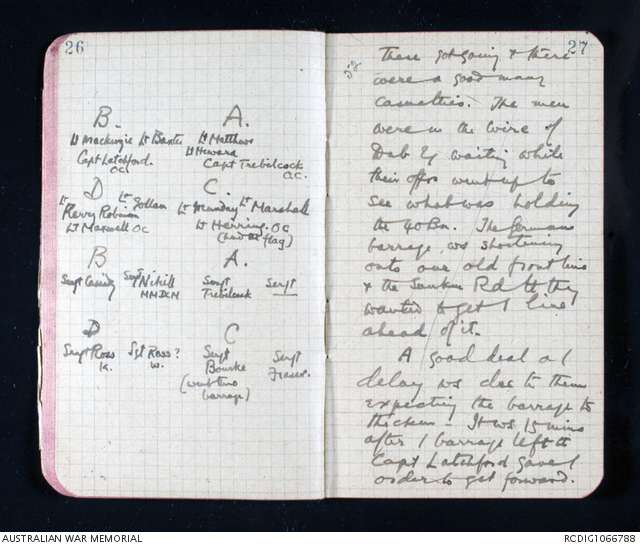 26
B. A.
Lt Mackenzie Lt Baxter Lt Matthews
Lt Howard
Capt Latchford. Capt Trebilcock
O.C. O.C.
D C.
Lt Lt Gollan Lt Munday Lt Marshall
Perry Robinson
Lt Maxwell OC Lt Herring. OC
(had the flag)
B A.
Sergt Cassidy Sergt Nihill Sergt Sergt
MM DCM Trebilcock
D C
Sergt Ross Sgt Ross? Sergt Sergt
K. W. Bourke Fraser.
(went two
barrage)
27
These got going & there
were a good many
casualties. The men
were in the wire of
waiting while
their offrs went up to
see what was holding
the 40 Bn. The Germans
barrage ws shortening
onto our old front line
& the Sunken Rd & they
wanted to get / line
ahead of it.
A good deal of /
delay ws due to them
expecting the barrage to
thicken - It ws 15 mins
after / barrage left tt
Capt Latchford gave /
order to get forward.
AUSTRALIAN WAR MEMORIAL
RCDIG1066788